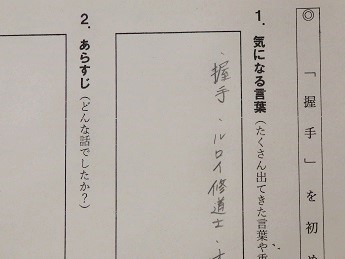 ◎「握手」を初め
1. 気になる言葉（たくさん出てきた言葉や重
・握手 ・ルロイ修道士 ・
2. あらすじ（どんな話でしたか？）